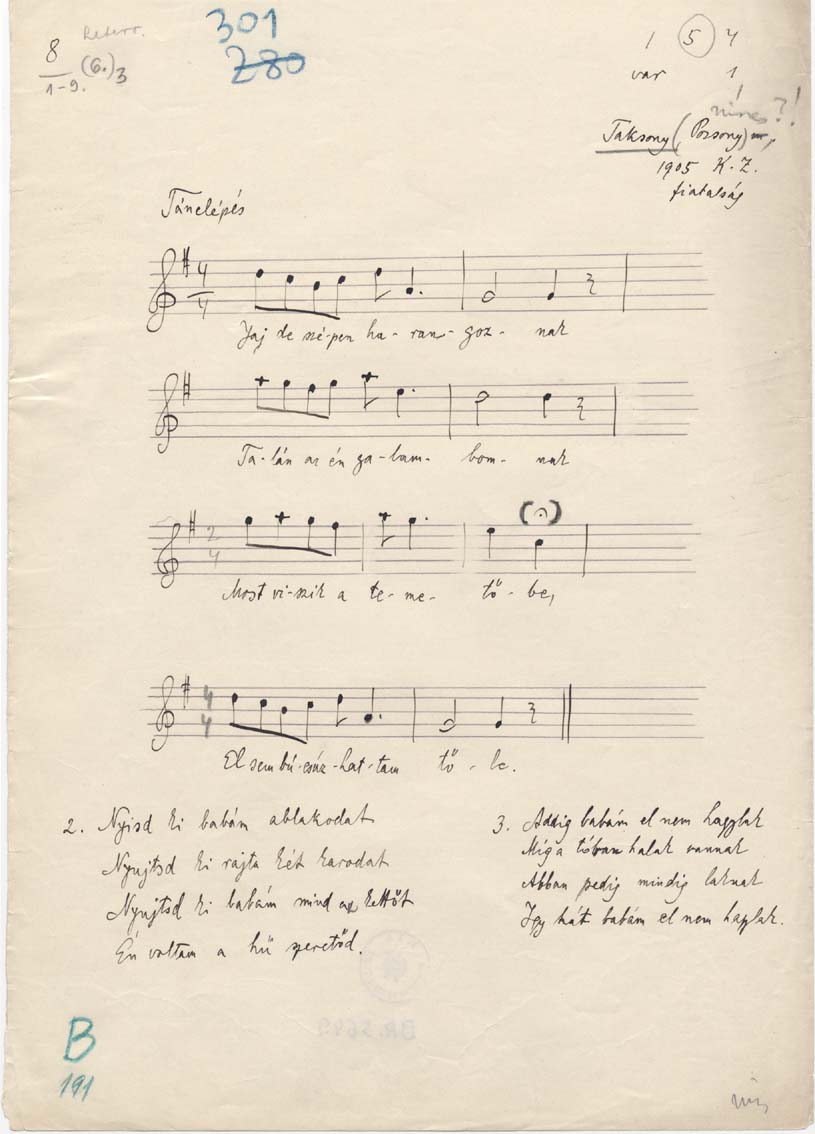 301
280
8
1-9. (6.)3
1 5 4
var 1
nincs?!
Taksony (Pozsony) m,
1905 K. Z.
fiatalság
Tánclépés
4
4
Jaj de szé-pen ha-ran-goz-nak
Ta-lán az én ga-lam-bom-nak
2
4
Most vi-szik a te-me-tő-be,
4
4
El sem bú-csúz-hat-tam tő-le.
2. Nyisd ki babám ablakodat
Nyujtsd ki rajta két karodat
Nyujtsd ki babám mind a kettőt
Én voltam a hű szeretőd.
3. Addig babám el nem hagylak
Míg a tóban halak vannak
Abban pedig mindig laknak
Igy hát babám el nem haglak.
BR. 5649
B
191